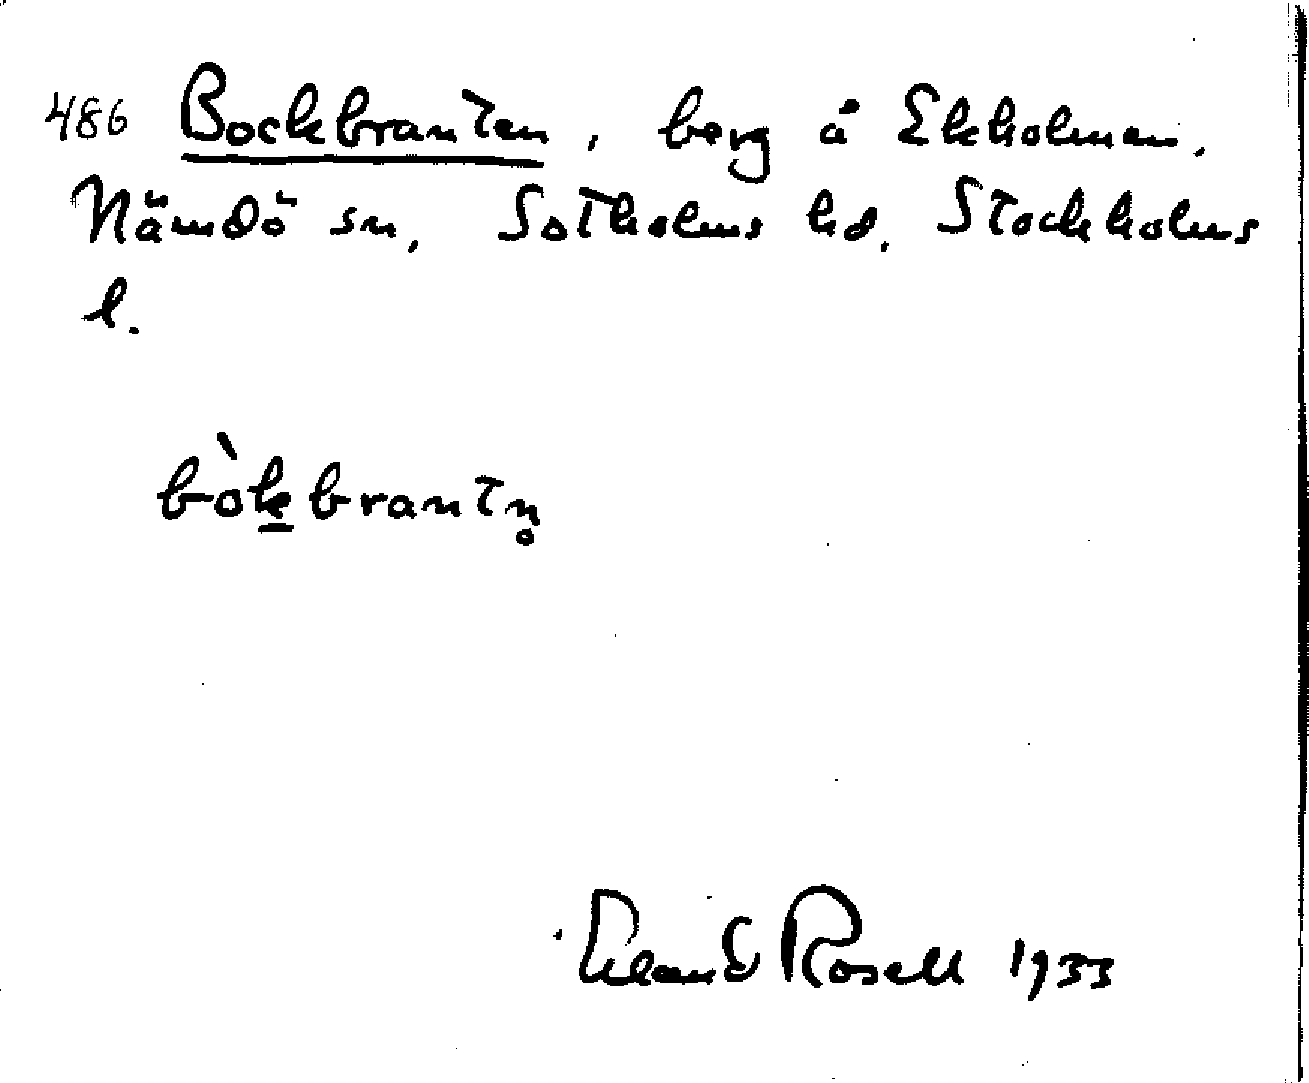 486 Bockbranten, berg å Ekholmen.
Nämdö sn, Sotholms hd. Stockholms
l.
bò̀k̲brantn̥
Rosell 1933